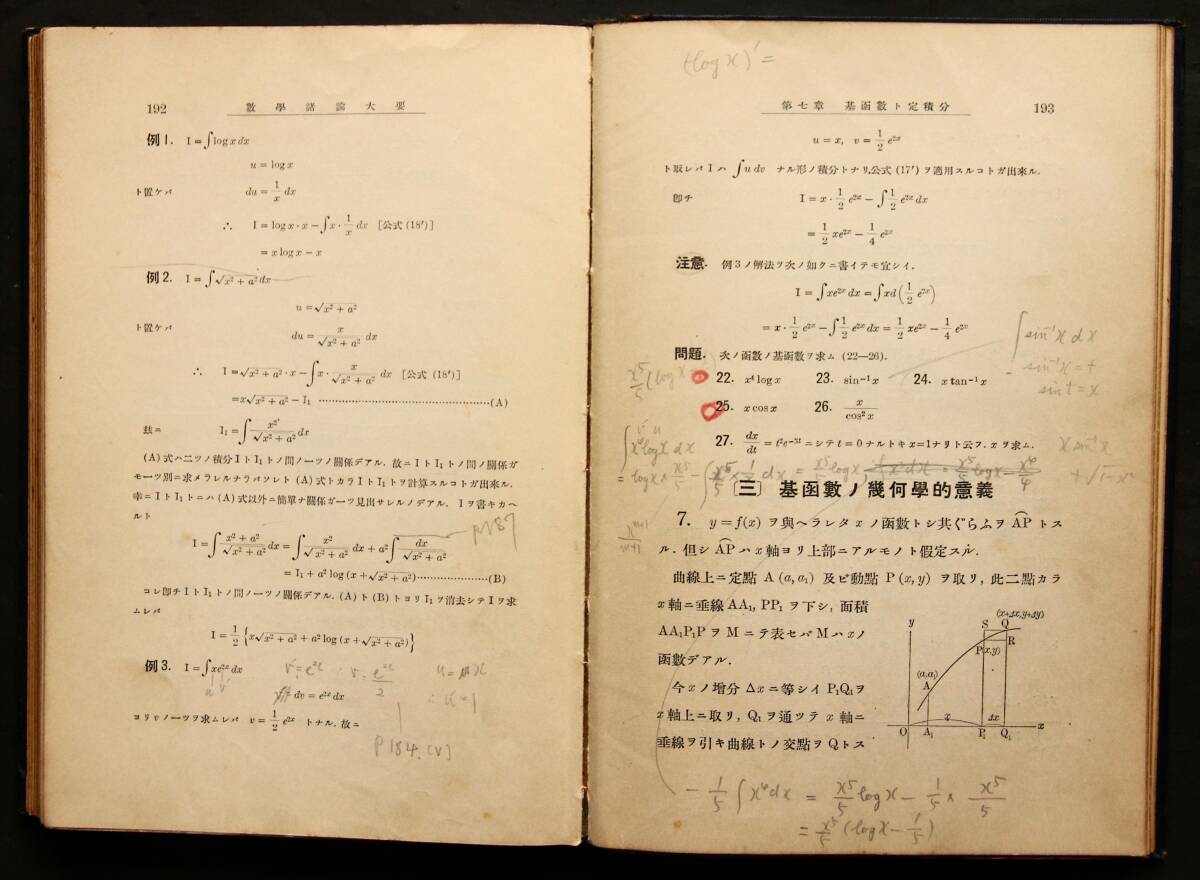 192 數學諸論大要
例1. I = ∫log x dx
u = log x
ト置ケバ du = 1/x dx
∴ I = log x·x − ∫x·1/x dx [公式(18′)]
= x log x − x
例2. I = ∫√(x² + a²) dx
u = √(x² + a²)
ト置ケバ du = x/√(x² + a²) dx
∴ I = √(x² + a²)·x − ∫x·x/√(x² + a²) dx [公式(18′)]
= x√(x² + a²) − I₁ ……………………………………(A)
玆ニ I₁ = ∫x²/√(x² + a²) dx
(A)式ハ二ツノ積分IトI₁トノ間ノ一ツノ關係デアル. 故ニIトI₁トノ間ノ關係ガ
モ一ツ別ニ求メラレルナラバソレト(A)式トカラIトI₁トヲ計算スルコトガ出來ル.
幸ニIトI₁トニハ(A)式以外ニ簡單ナ關係ガ一ツ見出サレルノデアル. Iヲ書キカヘ
ルト
I = ∫(x² + a²)/√(x² + a²) dx = ∫x²/√(x² + a²) dx + a²∫dx/√(x² + a²)
p187
= I₁ + a² log(x + √(x² + a²))………………(B)
コレ卽チIトI₁トノ間ノ一ツノ關係デアル. (A)ト(B)トヨリI₁ヲ消去シテIヲ求
ムレバ
I = 1/2 {x√(x² + a²) + a² log(x + √(x² + a²))}
例3. I = ∫xe²ˣ dx
u v′
dv = e²ˣ dx
ヨリvノ一ツヲ求ムレバ v = 1/2 e²ˣ トナル. 故ニ
P184. [V]
(log x)′ =
第七章 基函數ト定積分 193
u = x, v = 1/2 e²ˣ
ト取レバIハ ∫u dv ナル形ノ積分トナリ,公式(17′)ヲ適用スルコトガ出來ル.
卽チ I = x·1/2 e²ˣ − ∫1/2 e²ˣ dx
= 1/2 xe²ˣ − 1/4 e²ˣ
注意. 例3ノ解法ヲ次ノ如クニ書イテモ宜シイ.
I = ∫xe²ˣ dx = ∫xd(1/2 e²ˣ)
= x·1/2 e²ˣ − ∫1/2 e²ˣ dx = 1/2 xe²ˣ − 1/4 e²ˣ
∫sin⁻¹x dx
sin⁻¹x = t
sin t = x
問題. 次ノ函數ノ基函數ヲ求ム(22—26).
22. x⁴ log x 23. sin⁻¹x 24. x tan⁻¹x
25. x cos x 26. x/cos² x
27. dx/dt = t²e⁻³ᵗ ニシテ t = 0 ナルトキ x = 1 ナリト云フ. x ヲ求ム.
x sin⁻¹x
+ √1−x²
[三] 基函數ノ幾何學的意義
7. y = f(x) ヲ與ヘラレタ x ノ函數トシ其ぐらふヲ AP トス
ル. 但シ AP ハ x 軸ヨリ上部ニアルモノト假定スル.
曲線上ニ定點 A (a, a₁) 及ビ動點 P (x, y) ヲ取リ, 此二點カラ
x 軸ニ垂線 AA₁, PP₁ ヲ下シ, 面積
AA₁P₁P ヲ M ニテ表セバ M ハ x ノ
函數デアル.
今 x ノ增分 Δx ニ等シイ P₁Q₁ ヲ
x 軸上ニ取リ, Q₁ ヲ通ツテ x 軸ニ
垂線ヲ引キ曲線トノ交點ヲ Q トス
(x+Δx, y+Δy)
y S Q
P(x,y) R
(a,a₁)
A
x Δx
O A₁ P₁ Q₁ x
− 1/5 ∫x⁴dx = x⁵/5 log x − 1/5 × x⁵/5
= x⁵/5 (log x − 1/5)